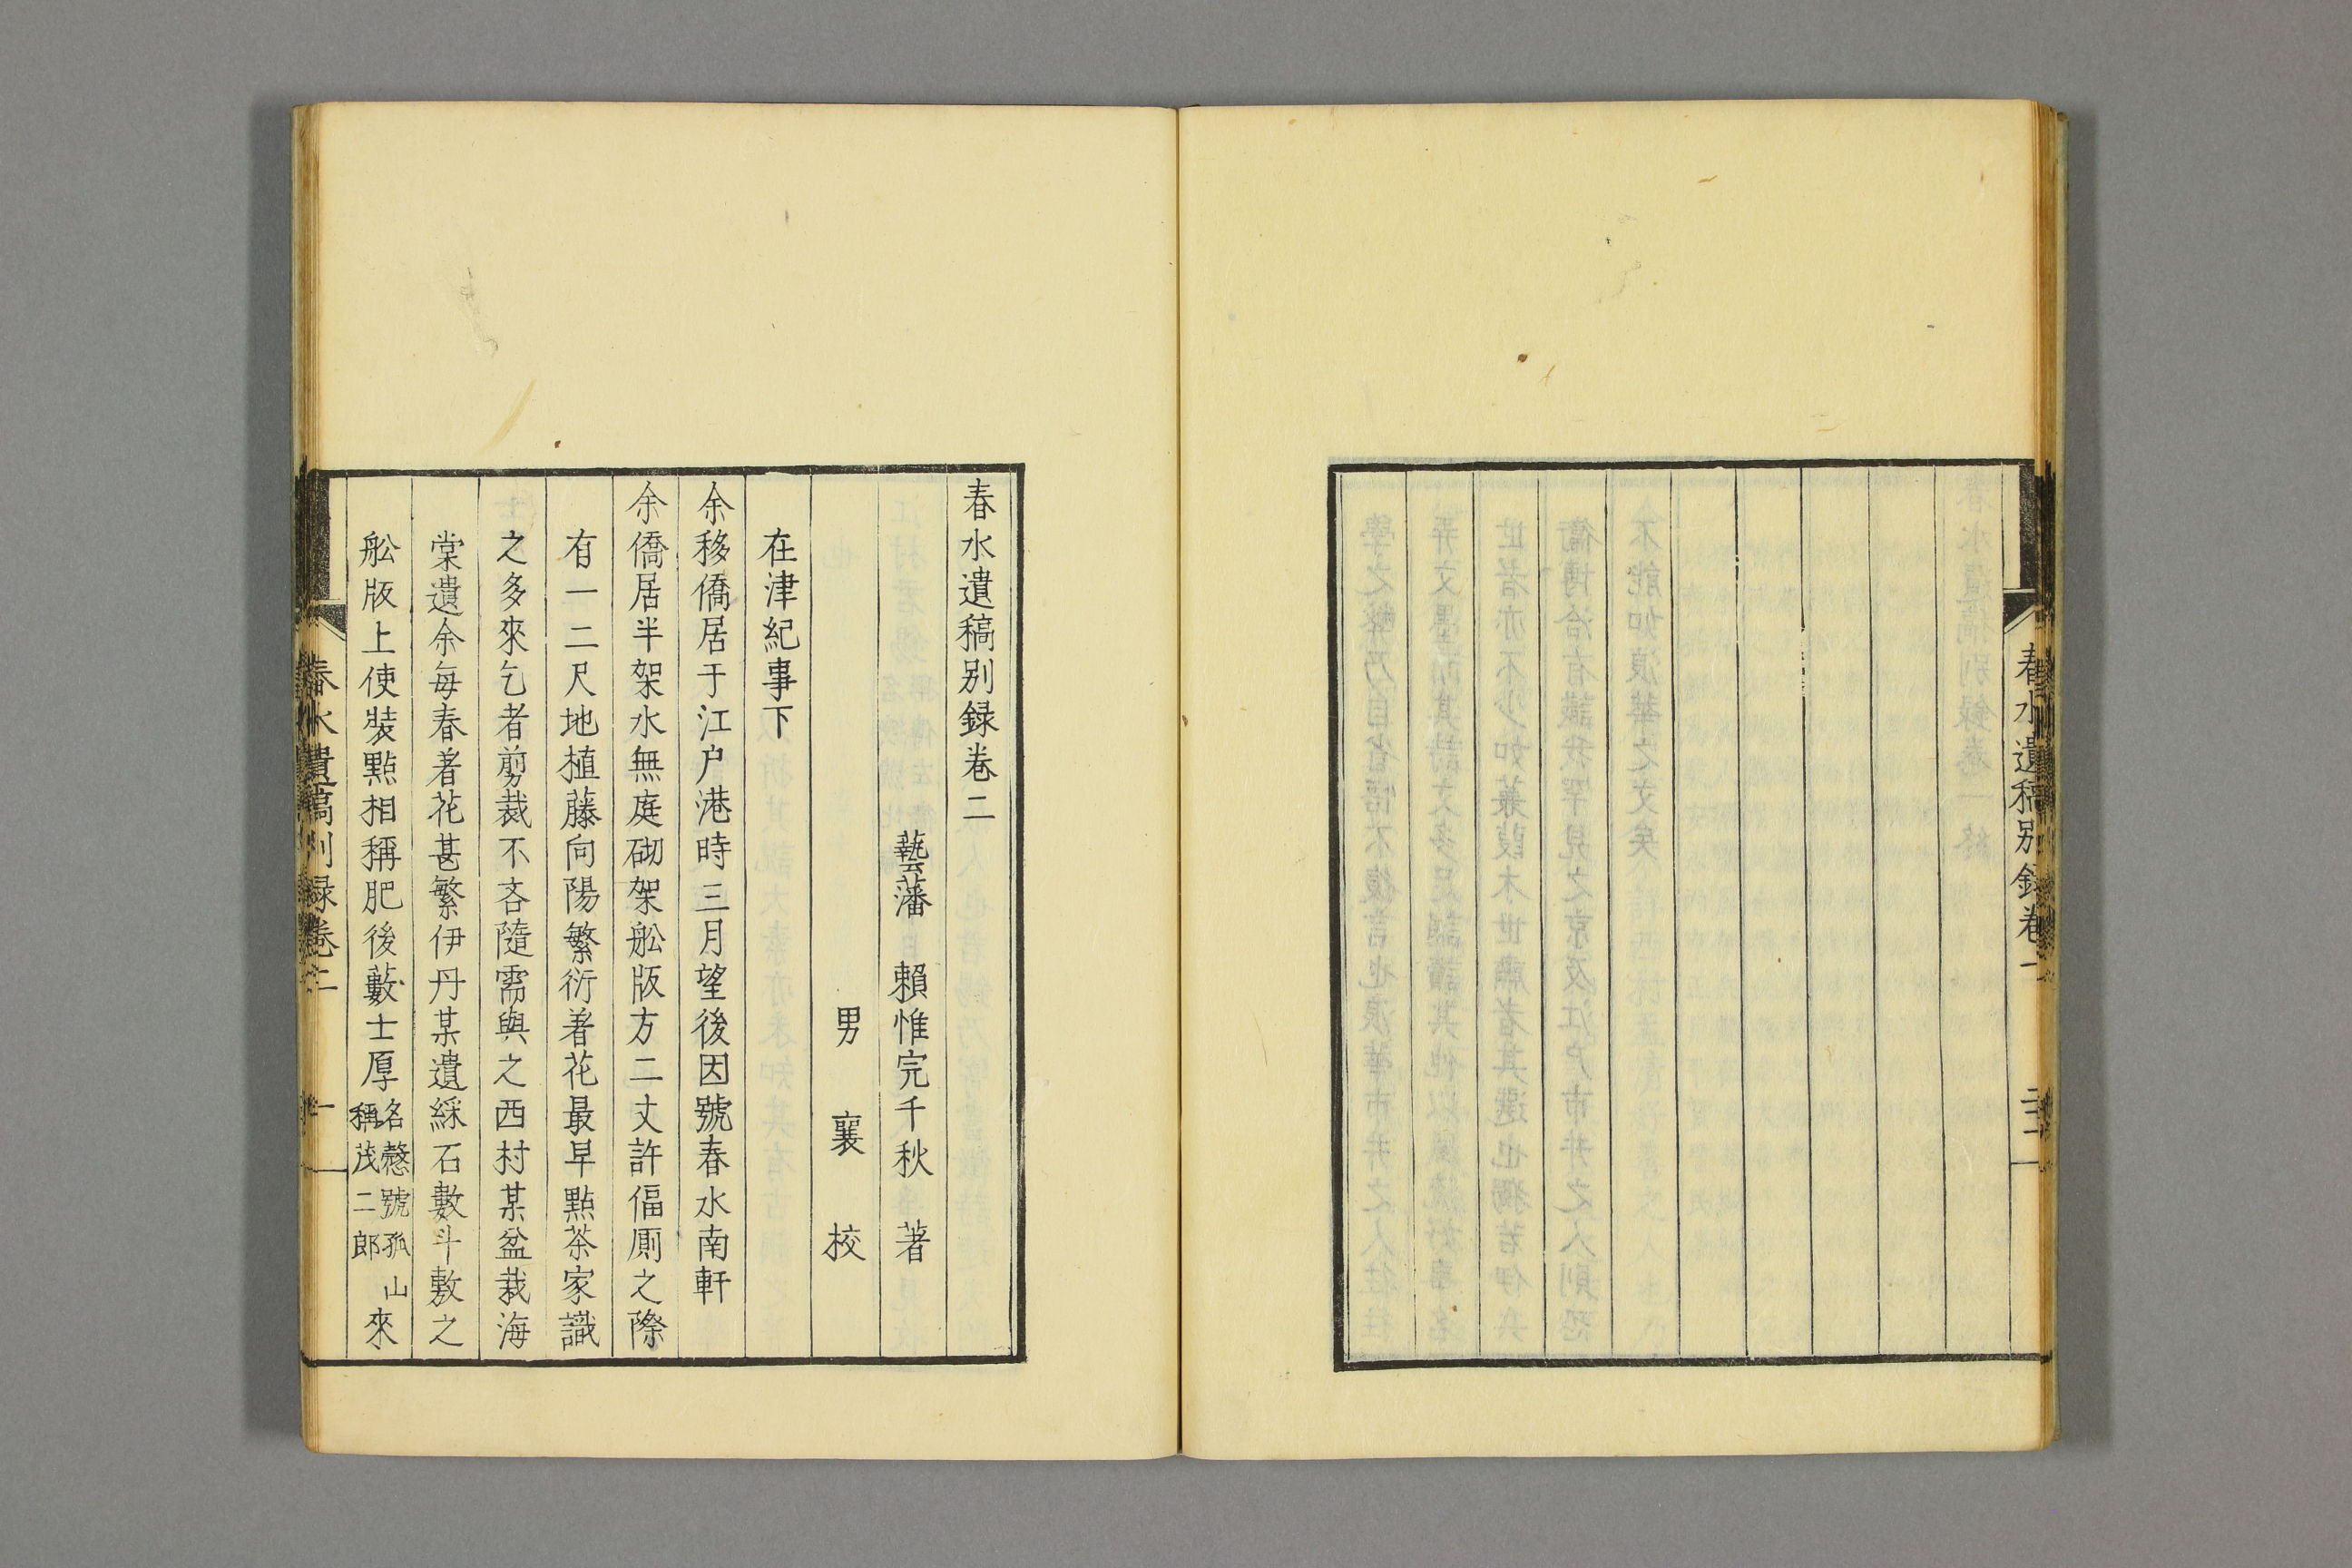 春水遺稿別録卷一
春水遺稿別録卷二
藝藩 賴惟完千秋 著
男 襄 校
在津紀事下
余移僑居于江户港時三月望後因號春水南軒
余僑居半架水無庭砌架舩版方二丈許偪厠之際
有一二尺地植藤向陽繁衍着花最早點茶家識
之多來乞者剪裁不吝隨需與之西村某盆栽海
棠遺余每春着花甚繁伊丹某遺綵石數斗敷之
舩版上使裝點相稱肥後藪士厚名愨號孤山稱茂二郎來
春水遺稿別録卷二
一